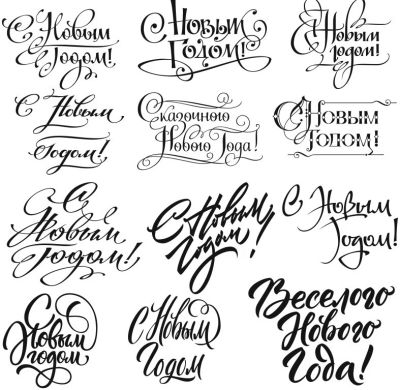 С Новым
Годом!
С Новым
Годом!
С Новым
годом!
С Новым
Годом!
Сказочного
Нового Года!
С Новым
Годом!
С
Новым
Годом!
С Новым
Годом!
С Новым
Годом!
С
Новым
годом
С Новым
Годом
Веселого
Нового
Года!